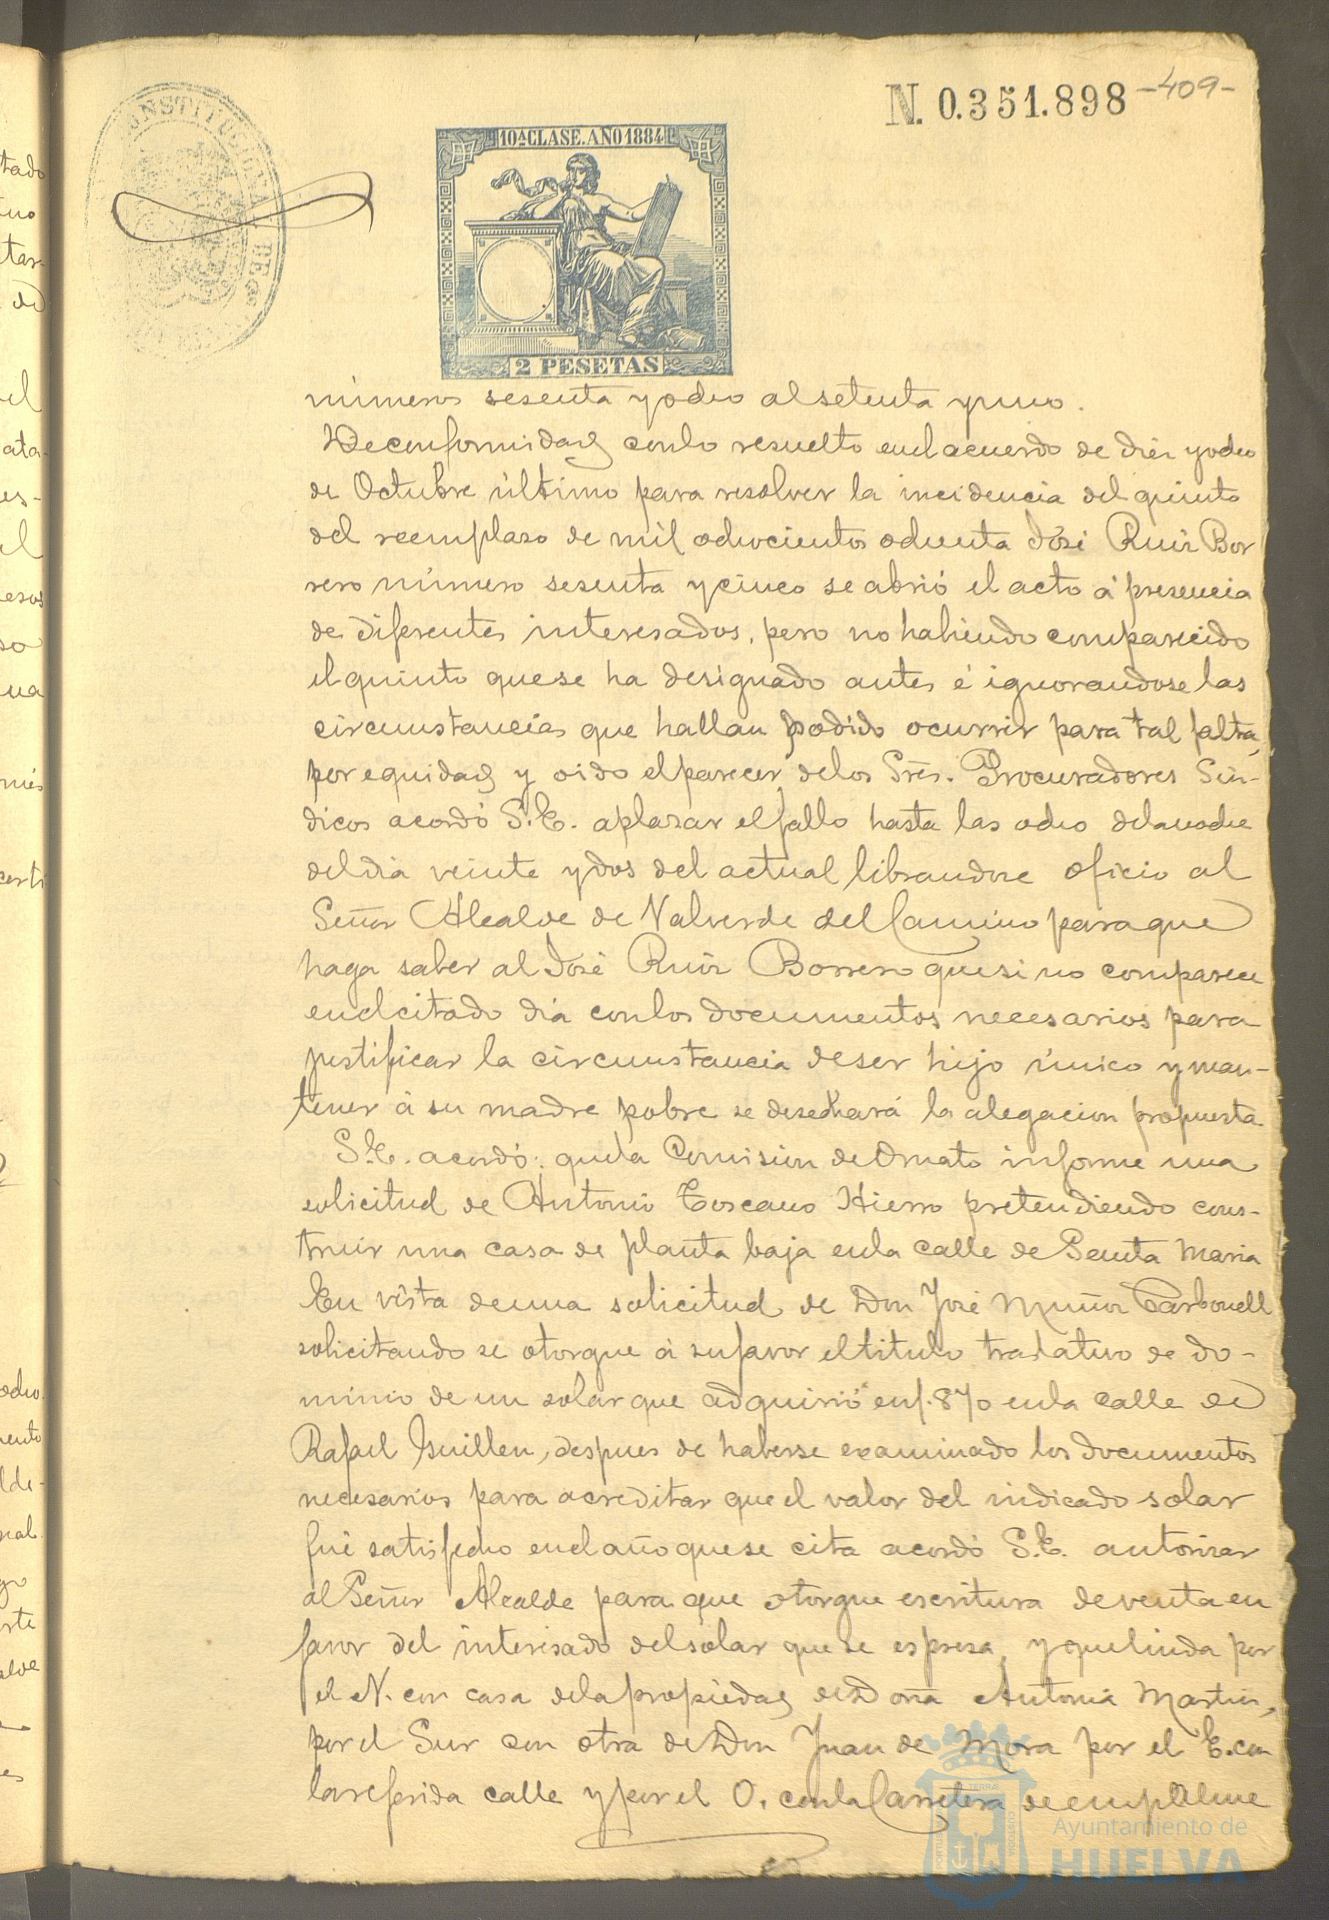 N. 0.351.898 -409-
CONSTITUCIONAL DE
10ª CLASE. AÑO 1884
2 PESETAS
números sesenta y ocho al setenta y uno.
De conformidad con lo resuelto en el acuerdo de diez y ocho
de Octubre último para resolver la incidencia del quinto
del reemplazo de mil ochocientos ochenta José Ruiz Bor
rero número sesenta y cinco se abrió el acto á presencia
de diferentes interesados, pero no habiendo comparecido
el quinto que se ha designado antes é ignorandose las
circunstancias que hallan podido ocurrir para tal falta,
por equidad y oido el parecer de los Sres. Procuradores Sin-
dicos acordó S.E. aplazar el fallo hasta las ocho de la noche
del dia veinte y dos del actual librandose oficio al
Señor Alcalde de Valverde del Camino para que
haga saber al José Ruiz Borrero que si no comparece
en el citado dia con los documentos necesarios para
justificar la circunstancia de ser hijo único y man-
tener á su madre pobre se desechará la alegacion propuesta
S.E. acordó: que la Comision de Ornato informe una
solicitud de Antonio Toscano Hierro pretendiendo cons-
truir una casa de planta baja en la calle de Santa Maria
En vista de una solicitud de Don José Muñoz Carbonell
solicitando se otorgue á su favor el titulo traslativo de do-
minio de un solar que adquirió en 1.870 en la calle de
Rafael Guillen, despues de haberse examinado los documentos
necesarios para acreditar que el valor del indicado solar
fué satisfecho en el año que se cita acordó S.E. autorizar
al Señor Alcalde para que otorgue escritura de venta en
favor del interesado del solar que se espresa, y que linda por
el N. con casa de la propiedad de Doña Antonia Martin,
por el Sur con otra de Don Juan de Mora por el E. con
la referida calle y por el O. con la Carretera de empalme
Ayuntamiento de
HUELVA